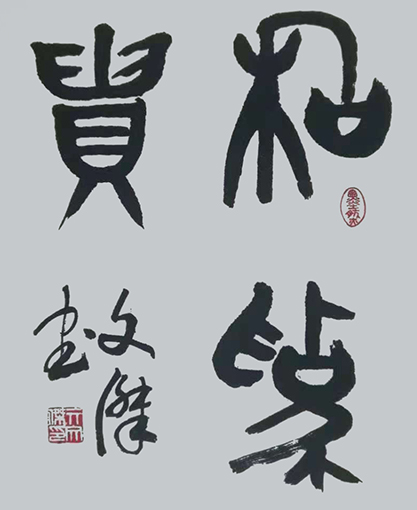 和為
貴
文傑
書